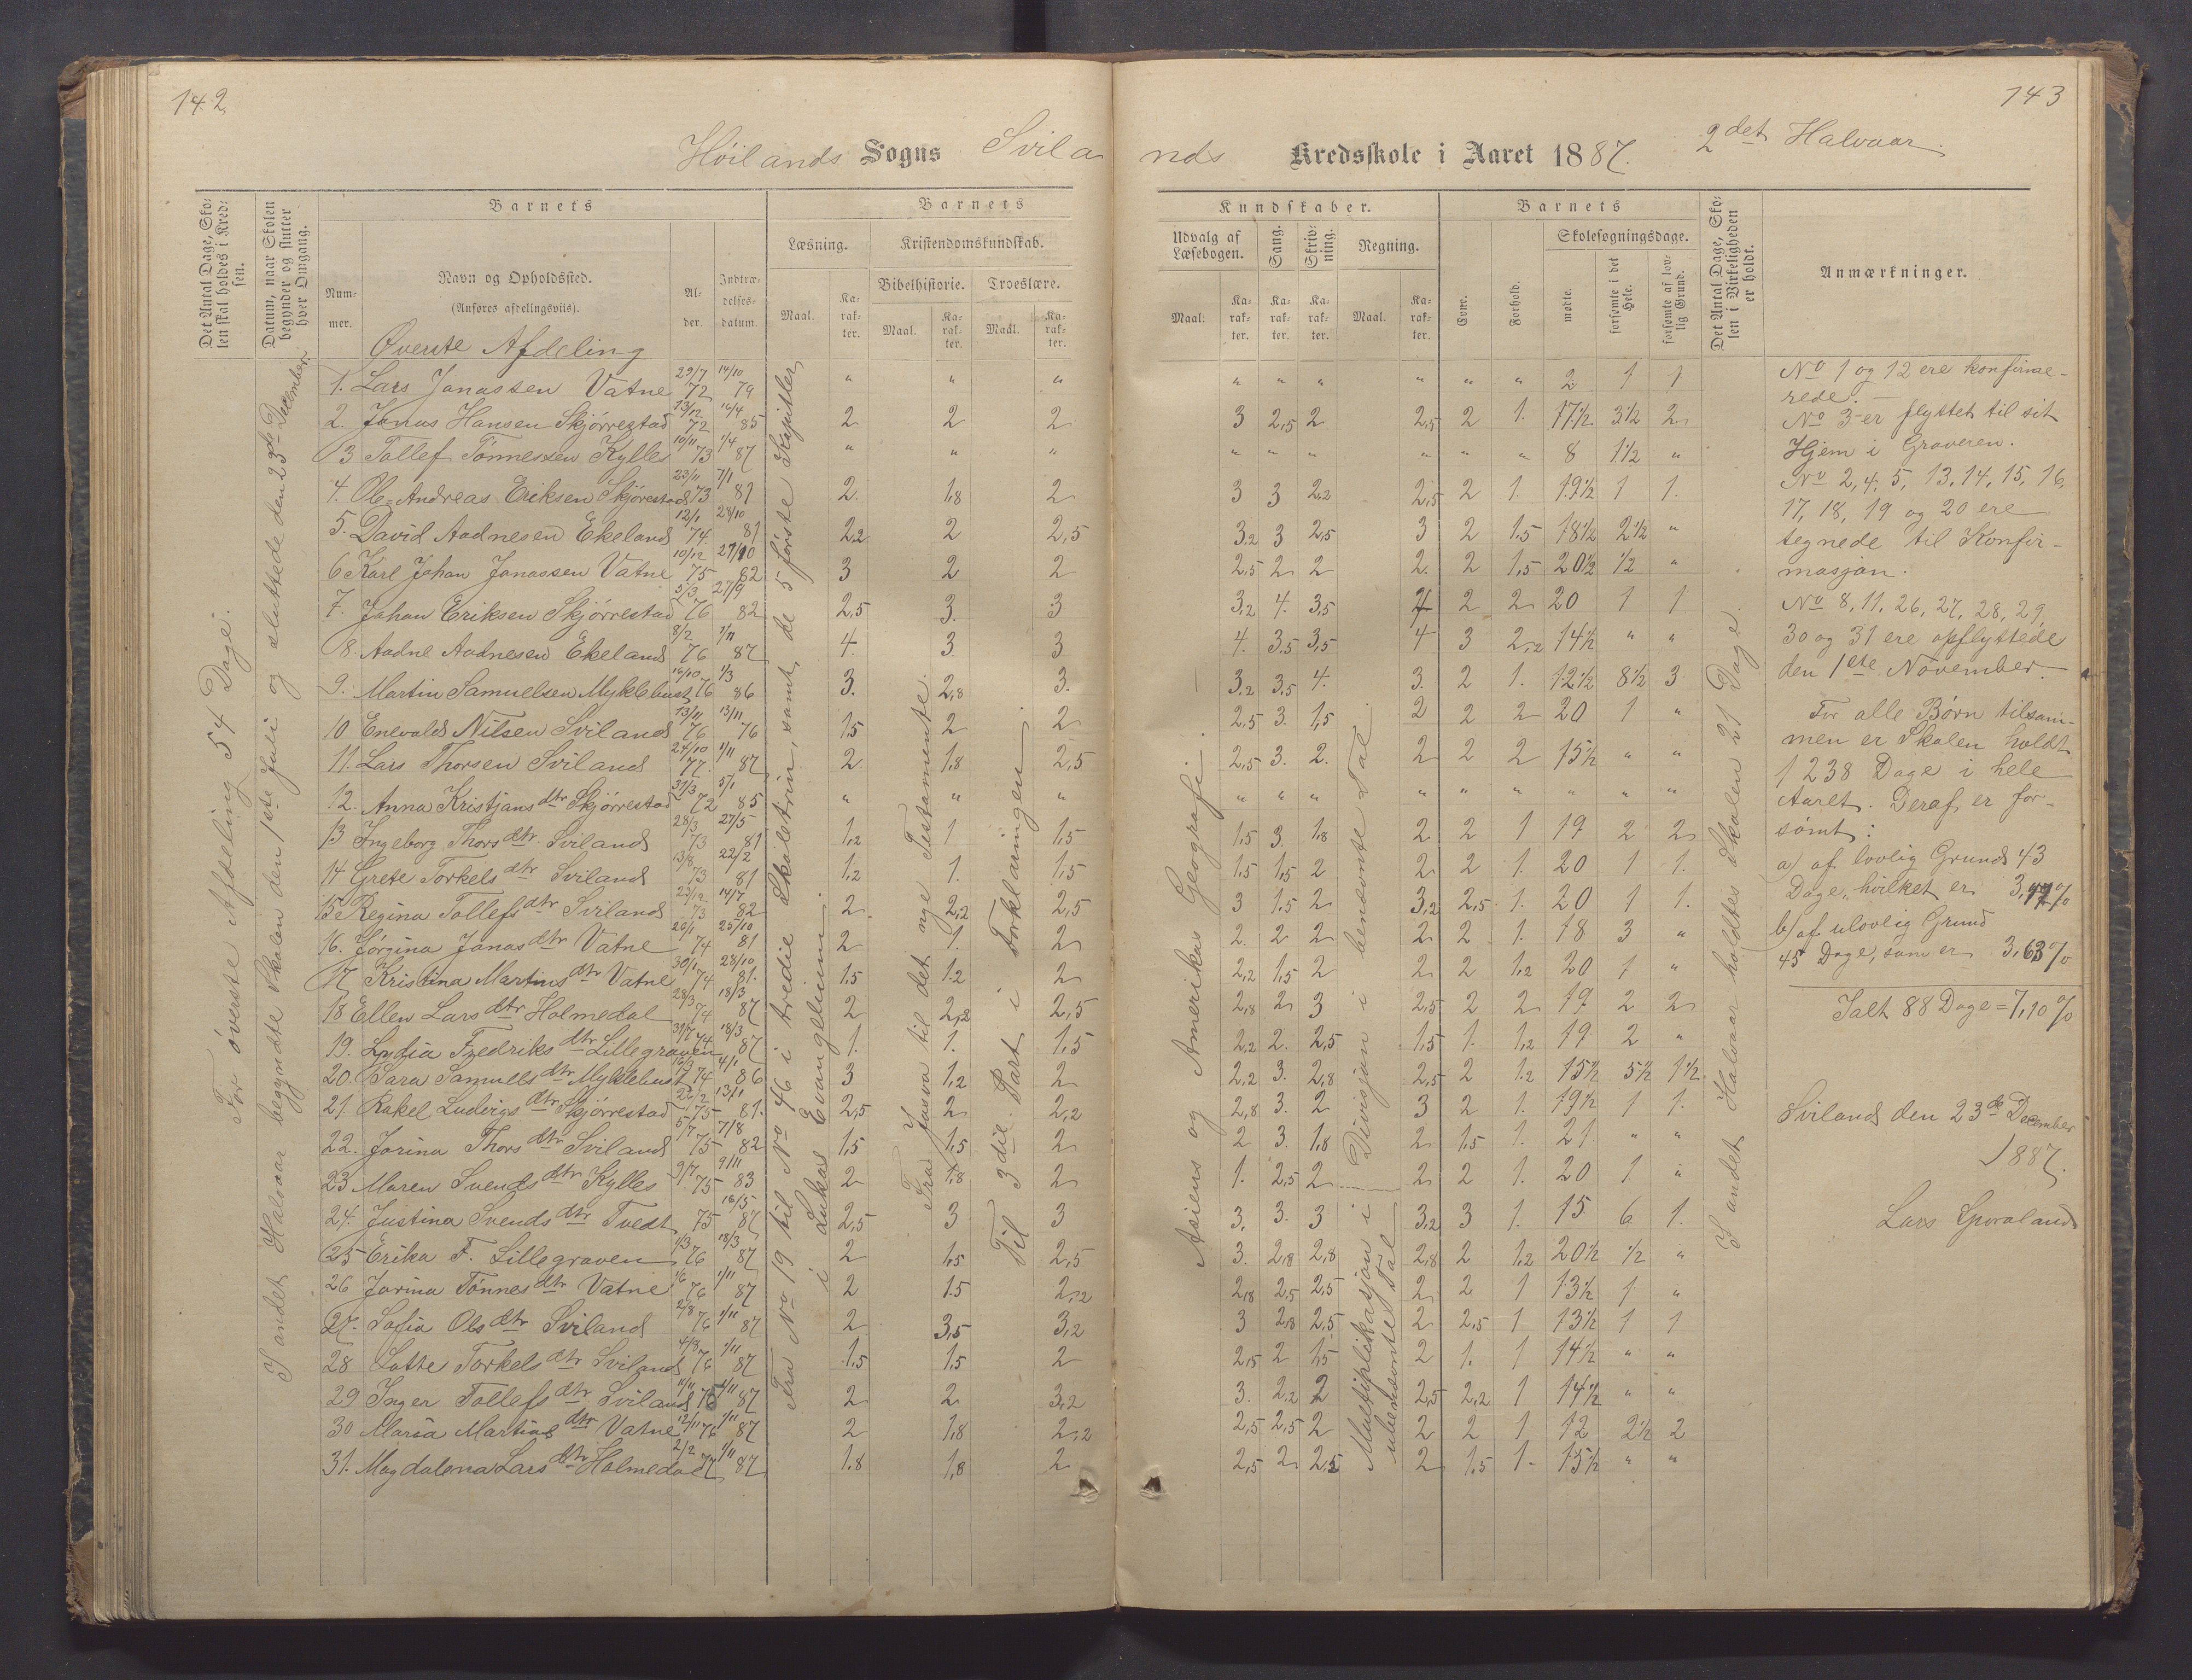 142.
Höilands Sogns Svila
Det Antal Dage, Sko-
len skal holdes i Kred-
sen.
Datum, naar Skolen
begynder og slutter
hver Omgang.
Barnets
Num-
mer.
Navn og Opholdssted.
(Anføres afdelingsviis).
Al-
der.
Indtræ-
delses-
datum.
Barnets
Læsning.
Maal.
Ka-
rak-
ter.
Kristendomskundskab.
Bibelhistorie.
Maal.
Ka-
rak-
ter.
Troeslære.
Maal.
Ka-
rak-
ter.
Øverste Afdeling
For øverste Afdeling 54 Dage.
I andet Halvaar begyndte Skolen den 1ste Juli og sluttede den 23de December.
Fra No 19 til No 46 i tredie Skoletrin, samt de 5 første Kapitler
i Lukas Evangelium.
Fra Josva til det nye Testamente.
Til 3die Part i Forklaringen.
1. Lars Janassen Vatne 29/7 72 14/10 79 " " "
2. Jonas Hansen Skjørrestad 13/12 72 16/4 85 2 2 2
3 Tollef Tönnessen Kylles 10/11 73 1/4 87 " " "
4. Ole Andreas Eriksen Skjørestad 23/11 73 7/1 81 2. 1,8 2
5. David Aadnesen Ekeland 12/1 74. 28/10 81 2,2 2 2,5
6 Karl Johan Janassen Vatne 10/12 75 27/10 82 3 2 2
7. Johan Eriksen Skjørrestad 5/3 76 27/9 82 2,5 3. 3
8. Aadne Aadnesen Ekeland 8/2 76 1/11 87 4. 3. 3
9. Martin Samuelsen Myklebust 16/10 76 1/3 86 3. 2,8 3.
10 Enevald Nilsen Sviland 13/11 76 13/11 76 1,5 2 2
11. Lars Thorsen Sviland 24/10 77. 1/11 87 2. 1,8 2,5
12. Anna Kristjans dtr Skjørrestad 31/3 72 5/1 85 " " "
13 Ingeborg Thors dtr. Sviland 28/3 73 27/5 81 1,2 1 1,5
14 Grete Torkels dtr Sviland 13/8 73 22/2 81 1,2 1. 1,5
15 Regina Tollefs dtr Sviland 23/12 73 14/7 82 2 2,2 2,5
16. Jörgina Janas dtr Vatne 20/1 74 25/10 81 2 1. 2
17 Kristina Martins dtr Vatne 30/1 74 28/10 81. 1,5 1.2 2
18 Ellen Lars dtr Holmedal 28/3 74 18/3 87 2 2,2 2,5
19. Lydia Fredriks dtr Lillegraven 31/7 74 18/3 87 1. 1. 1,5
20. Sara Samuels dtr Myklebust 74 4/1 86 3 1,2 2
21. Rakel Ludvigs dtr Skjørrestad 22/2 75 13/1 81. 2,5 2 2,2
22. Jorina Thors dtr Sviland 5/7 75 7/8 82 1,5 1,5 2
23 Maren Svends dtr Kylles 9/7 75 9/11 83 2 1,8 2
24. Justina Svends dtr Tvedt 75 16/5 87 2,5 3 3
25 Erika F. Lillegraven 1/3 76 18/3 87 2 1,5 2,5
26 Jorina Tönnes dtr Vatne 1/6 76 1/11 87 2 1.5 2,2
27. Sofia Ols dtr Sviland 2/8 76 1/11 87 2 3,5 3,2
28 Lotte Torkels dtr Sviland 4/8 76 1/11 87 1,5 1,5 2
29 Inger Tollefs dtr Sviland 11/11 76 1/11 87 2 2 3,2
30 Maria Martins dtr Vatne 12/11 76 1/11 87 2 1,8 2,2
31. Magdalena Lars dtr Holmedal 2/2 77 1/11 87 1.8 1,8 2
143
nds Kredsskole i Aaret 1887. 2det Halvaar.
Kundskaber.
Udvalg af
Læsebogen.
Maal.
Ka-
rak-
ter.
Sang.
Ka-
rak-
ter.
Skriv-
ning.
Ka-
rak-
ter.
Regning.
Maal.
Ka-
rak-
ter.
Barnets
Evner.
Forhold.
Skolesøgningsdage.
mødte.
forsømte i det
Hele.
forsømte af lov-
lig Grund.
Det Antal Dage, Sko-
len i Virkeligheden
er holdt.
Anmærkninger.
Asiens og Amerikas Geografi.
Divisjon i benævnte Tal.
Multiplikasjon i
ubenævnte Tal
I andet Halvaar holdtes Skolen 21 Dage
" " " " " " 2 1 1
3 2,5 2 2,5 2 1. 17½ 3½ 2
" " " " " " 8 1½ "
3 3 2,2 2,5 2 1. 19½ 1 1.
3,2 3 2,5 3 2 1.5 18½ 2½ "
2,5 2 2 2. 2 1,5 20½ ½ "
3,2 4. 3,5 4 2 2 20 1 1
4. 3,5 3,5 4 3 2,2 14½ " "
3.2 3,5 4. 3. 2 1. 12½ 8½ 3
2,5 3. 1,5 2 2 2 20 1 "
2,5 3. 2. 2 2 2 15½ " "
" " " " " " " " "
1,5 3 1,8 2 2 1 19 2 2
1,5 1,5 2 2 2 1. 20 1 1.
3 1.5 2 3,2 2,5 1. 20 1 1.
2. 2 2 2 2 1. 18 3 "
2,2 1,5 2 2 2 1,2 20 1 "
2,8 2 3 2,5 2 2 19 2 2
2,2 2. 2,5 1,5 1. 1,2 19 2 "
2,2 3. 2,8 2,5 2 1.2 15½ 5½ 1½
2,8 3. 2 3 2 1. 19½ 1 1.
2 3. 1,8 2 1.5 1. 21 " "
1. 2,5 2 2 2 1. 20 1 "
3. 3. 3 3,2 3 1. 15 6 1.
3. 2,8 2,8 2,8 2 1,2 20½ ½ "
2,8 2,5 2,5 2 2 1 13½ 1 "
3 2,8 2,5 2 2,5 1 13½ 1 1
2,5 2 1,5 2 1. 1 14½ " "
3. 2,2 2 2,5 2,2 1 14½ " "
2,5 2,5 2 2 2 1 12 2½ 2
2,5 2 2,5 2 1.5 1 15½ " "
No 1 og 12 ere konfirme-
rede.
No 3 er flyttet til sit
Hjem i Graveren.
No 2, 4, 5, 13, 14, 15, 16,
17, 18, 19 og 20 ere
tegnede til Konfir-
masjon.
No 8, 11, 26, 27, 28, 29,
30 og 31 ere opflyttede
den 1ste November.
For alle Børn tilsam-
men er Skolen holdt
1238 Dage i hele
Aaret. Deraf er for-
sømt:
a) af lovlig Grund 43
Dage, hvilket er 3,47%
b) af ulovlig Grund
45 Dage, som er 3,63%
Ialt 88 Dage = 7,10%
Sviland den 23de December
1887.
Lars Sporaland